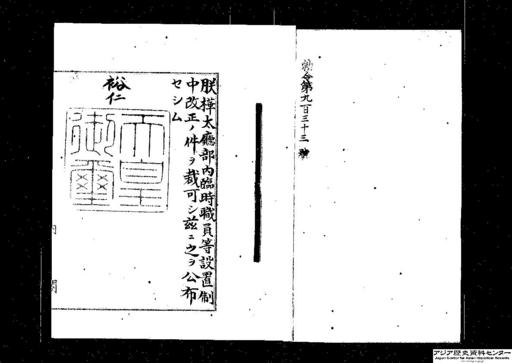 勅令第九百三十三號
朕樺太廳部内臨時職員等設置制
中改正ノ件ヲ裁可シ茲ニ之ヲ公布
セシム
裕仁
天皇
御璽
アジア歴史資料センター
Japan Center for Asian Historical Records